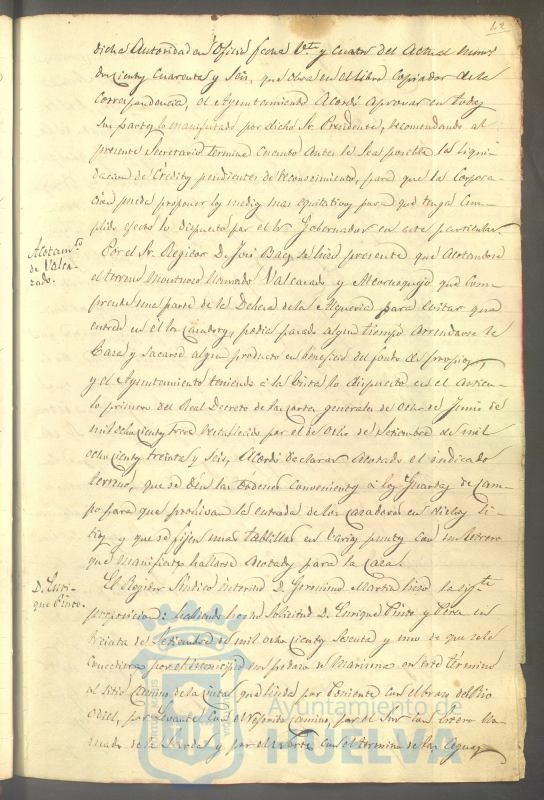 62
dicha Autoridad en Oficio fecha Vte. y cuatro del Actual numo.
doscientos Cuarenta y Seis, que obra en el Libro Copiador de la
Correspondencia, el Ayuntamiento Acordó aprovar en todas
sus partes lo manifestado por dicho Sr. Presidente, recomendando al
presente Secretario termine cuanto antes le sea posible la liqui-
dacion de Créditos pendientes de reconocimiento, para que la Corpora-
cion pueda proponer los medios mas equitativos para que tenga cum-
plido efecto lo dispuesto por el Sr. Gobernador en este particular.
Acotamto.
de Valca-
zado.
Por el Sr. Regidor D. José Baez se hizo presente que Acotandose
el terreno montuoso llamado Valcazado y Alcornoquejo que Com-
prende una parte de la Dehesa de la Alqueria para evitar que
entren en él los Cazadores, podia pasado algun tiempo Arrendarse la
Caza y sacarse algun producto en beneficio del fondo de propios,
y el Ayuntamiento teniendo á la vista lo dispuesto en el Articu-
lo primero del Real Decreto de las Cortes generales de Ocho de Junio de
mil ochocientos trece restablecido por el de Ocho de Setiembre de mil
ochocientos treinta y seis, Acordó declarar Acotado el indicado
terreno, que se den las Ordenes Convenientes á los Guardas de Cam-
po para que prohivan la entrada de los Cazadores en dichos Si-
tios y que se fijen unas tablillas en varios puntos con un letrero
que manifieste hallarse Acotados para la Caza.
D. Enri-
que Pinto.
El Regidor Síndico interino D. Jeronimo Martin hizo la sigte.
proposicion: habiendo hecho solicitud D. Enrique Pinto y Vera en
treinta de Setiembre de mil ochocientos sesenta y uno de que se le
Concediera por el municipio un pedazo de Marisma en este término
al Sitio Camino de la que linda por Poniente con el brazo del Rio
Odiel, por Levante con el referido Camino, por el Sur con estero lla-
mado de las y por el Norte con el termino de las
Ayuntamiento de
HUELVA